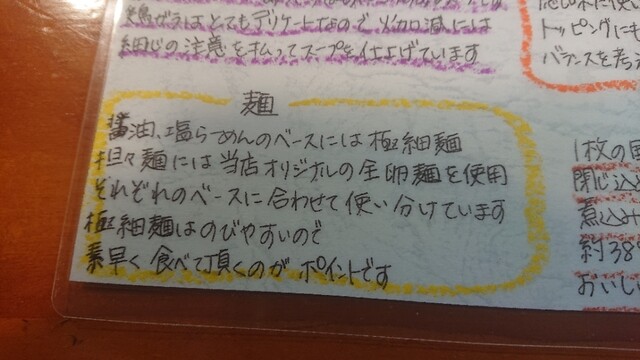 鶏ガラはとてもデリケートなので火加減には
細心の注意を払ってスープを仕上げています
トッピングにも
バランスを考え
麺
醤油、塩らーめんのベースには極細麺
担々麺には当店オリジナルの全卵麺を使用
それぞれのベースに合わせて使い分けています
極細麺はのびやすいので
素早く食べて頂くのがポイントです
1枚の
閉じ込
煮込み
約38
おいし